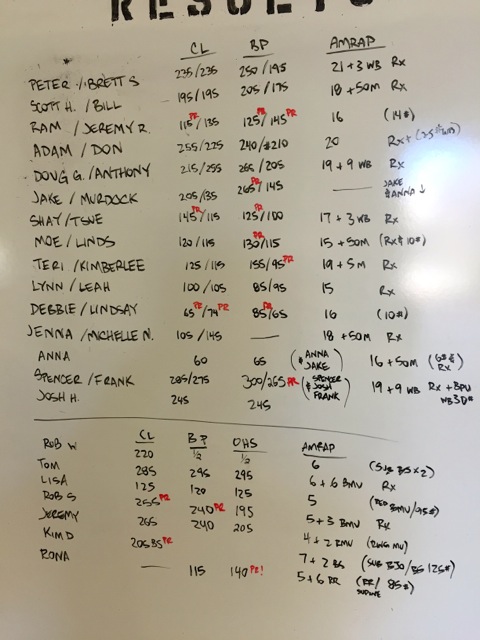 RESULTS
CL BP AMRAP
PETER / BRETT S 235/235 250/195 21 + 3 WB Rx
SCOTT H. / BILL 195/195 205/175 18 + 50M Rx
RAM / JEREMY R. 115 PR/135 125 PR/145 PR 16 (14#)
ADAM / DON 255/225 240/#210 20 Rx+
DOUG G. / ANTHONY 215/255 265/205 19 + 9 WB Rx
JAKE / MURDOCK 205/135 265 PR/145 — JAKE & ANNA ↓
SHAY / TSUE 145 PR/115 125 PR/100 17 + 3 WB Rx
MOE / LINDS 120/115 130 PR/115 15 + 50M (Rx & 10#)
TERI / KIMBERLEE 125/115 155/95 PR 19 + 5M Rx
LYNN / LEAH 100/105 85/95 15 Rx
DEBBIE / LINDSAY 65 PR/74 PR 85 PR/65 16 (10#)
JENNA / MICHELLE N. 105/145 — 18 + 50M Rx
ANNA 60 65 (& ANNA JAKE) 16 + 50M (6# & Rx)
SPENCER / FRANK 285/275 300/265 PR (& SPENCER & JOSH FRANK) 19 + 9 WB Rx + BPU WB 30#
JOSH H. 245 245
CL BP OHS AMRAP
ROB W 220 1/2 1/2 6 (SUB BS x 2)
TOM 285 295 295 6 + 6 BMU Rx
LISA 125 120 125 5 (RED BMU/95#)
ROB S 255 PR 240 PR 195 5 + 3 BMU Rx
JEREMY 265 240 205 4 + 2 RMU (RING MU)
KIM D 205 85 PR 7 + 2 BS (SUB BJO/BS 125#)
RONA — 115 140 PR! 5 + 6 RR (RR/ 85#)